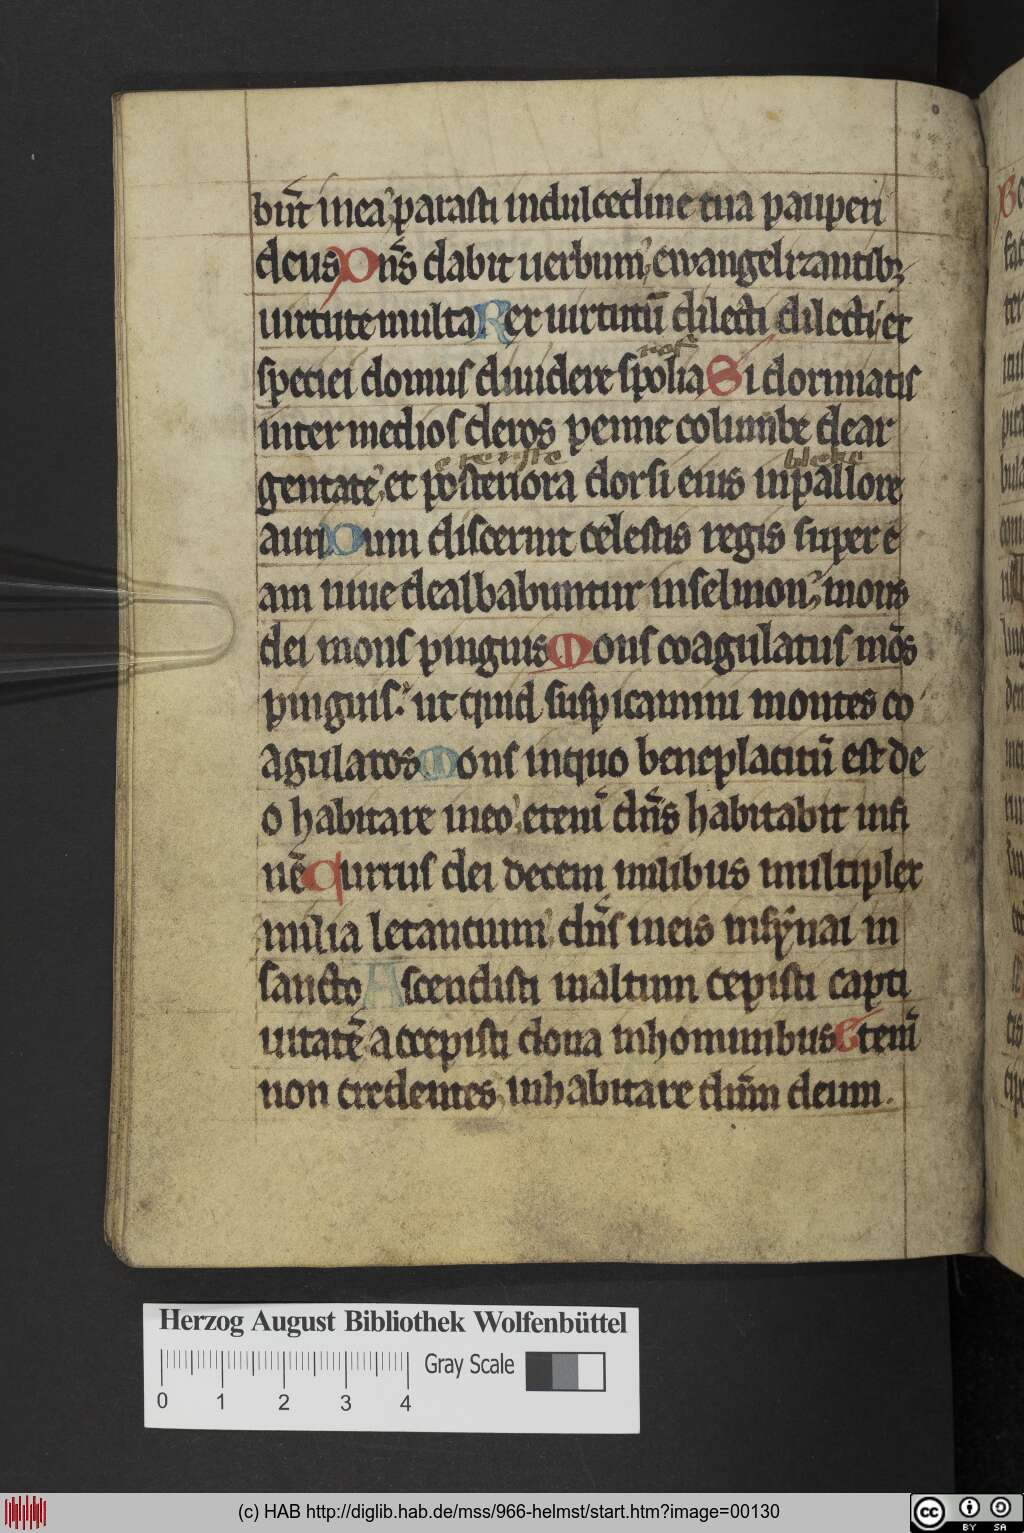 bu̅t in ea parasti in dulcedine tua pauperi
deus Dn̅s dabit uerbum ewangelizantibꝫ
uirtute multa Rex uirtutu̅ dilecti dilecti et
speciei domus diuidere spolia Si dormiatis
inter medios cleros penne columbe dear
gentate et posteriora dorsi eius in pallore
auri Dum discernit celestis regis super e
am niue dealbabuntur in selmon mons
dei mons pinguis Mons coagulatus mo̅s
pinguis ut quid suspicamini montes co
agulatos Mons in quo beneplacitu̅ est de
o habitare in eo eteni̅ dn̅s habitabit in fi
ne̅ Currus dei decem milibus multiplex
milia letantium dn̅s in eis in sẏnai in
sancto Ascendisti in altum cepisti capti
uitate̅ accepisti dona in hominibus Eteni̅
non credentes inhabitare dn̅m deum.
Herzog August Bibliothek Wolfenbüttel
Gray Scale
0 1 2 3 4
(c) HAB http://diglib.hab.de/mss/966-helmst/start.htm?image=00130
cc BY SA